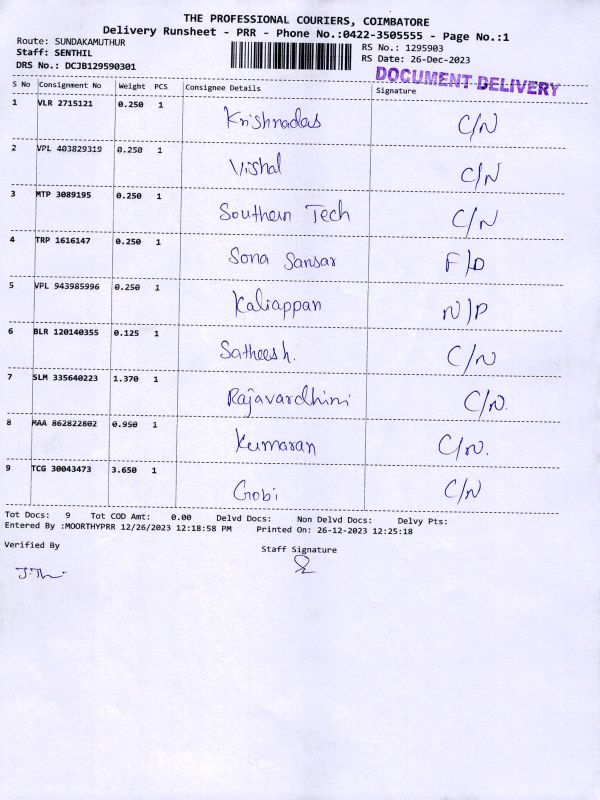 THE PROFESSIONAL COURIERS, COIMBATORE
Delivery Runsheet - PRR - Phone No.:0422-3505555 - Page No.:1
Route: SUNDAKAMUTHUR
Staff: SENTHIL
DRS No.: DCJB129590301
RS No.: 1295903
RS Date: 26-Dec-2023
DOCUMENT DELIVERY
S No Consignment No Weight PCS Consignee Details Signature
1 VLR 2715121 0.250 1 Krishnadas C/N
2 VPL 403829319 0.250 1 Vishal C/N
3 MTP 3089195 0.250 1 Southern Tech C/N
4 TRP 1616147 0.250 1 Sona Sansar F/D
5 VPL 943985996 0.250 1 Kaliappan N/P
6 BLR 120140355 0.125 1 Satheesh. C/N
7 SLM 335640223 1.370 1 Rajavardhini C/N.
8 MAA 862822802 0.950 1 Kumaran C/N.
9 TCG 30043473 3.650 1 Gobi C/N
Tot Docs: 9 Tot COD Amt: 0.00 Delvd Docs: Non Delvd Docs: Delvy Pts:
Entered By :MOORTHYPRR 12/26/2023 12:18:58 PM Printed On: 26-12-2023 12:25:18
Verified By
Staff Signature